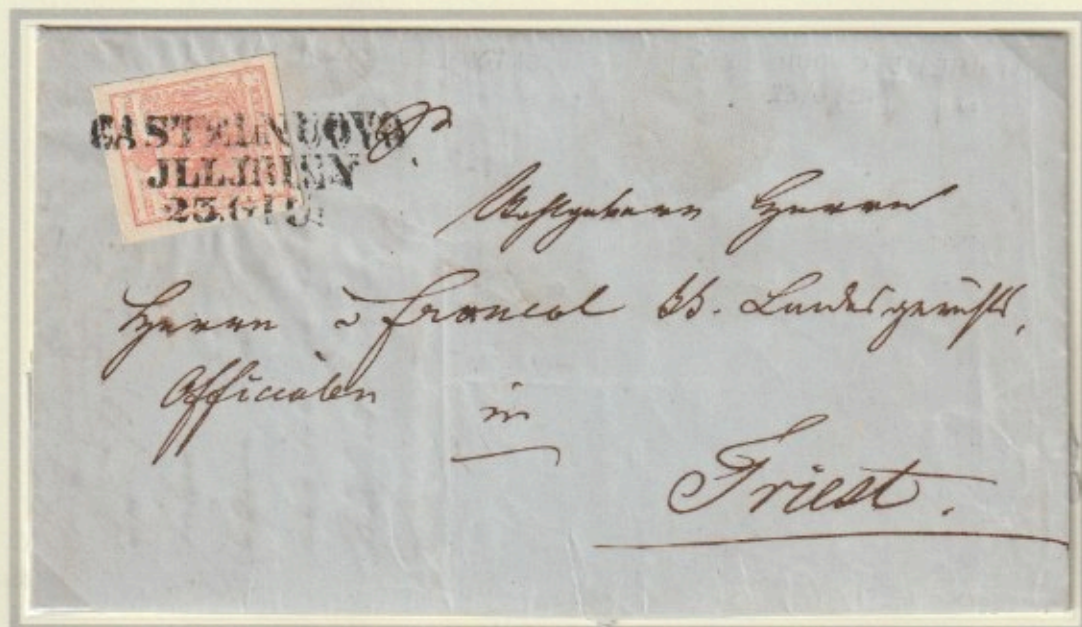 CASTELNUOVO
JLLIRIEN
23.
Wohlgeboren Herrn
Herrn v Francol kk. Landesgerichts,
Officialen in
Triest.